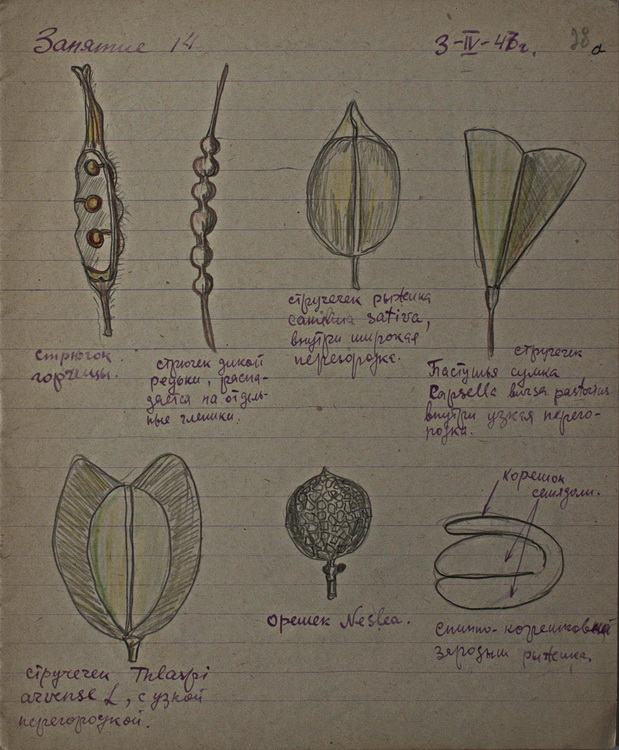 Занятие 14
3-IV-47г.
28
а
стрючок
горчицы.
стрючек дикой
редьки, распа-
дается на отдель-
ные членики.
стручечек рыжика
Camelina sativa,
внутри широкая
перегородка.
стручечек
Пастушья сумка
Capsella bursa pastoris
внутри узкая перего-
родка.
стручечек Thlaspi
arvense L, с узкой
перегородкой.
орешек Neslea.
корешок
семядоли.
спинно-корешковый
зародыш рыжика.